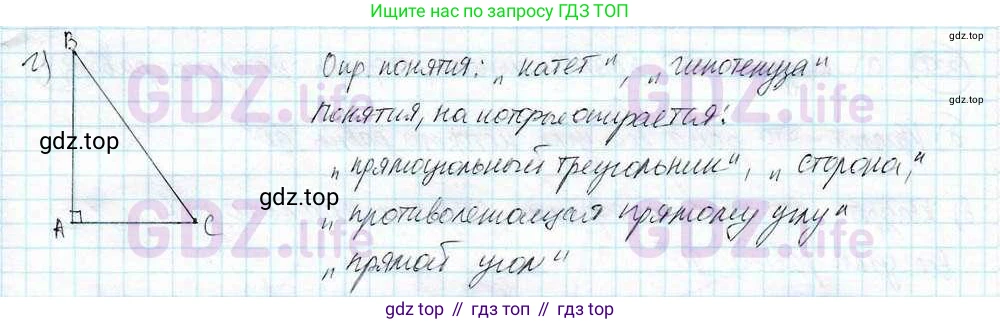 Ищите нас по запросу ГДЗ ТОП
г)
B
A
C
Опр. понятия: „катет", „гипотенуза"
Понятия, на которые опирается:
„прямоугольный треугольник", „сторона,"
„противолежащая прямому углу"
„прямой угол"
GDZ.life
GDZ.life
GDZ.life
GDZ.life
gdz.top
gdz.top
gdz.top
gdz.top
gdz top // гдз топ // gdz top // гдз топ